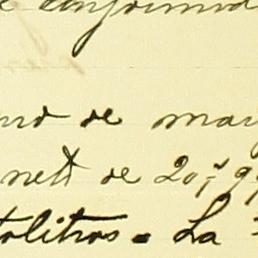 e conformid
nd de may
nett de 20,
tolitros. La